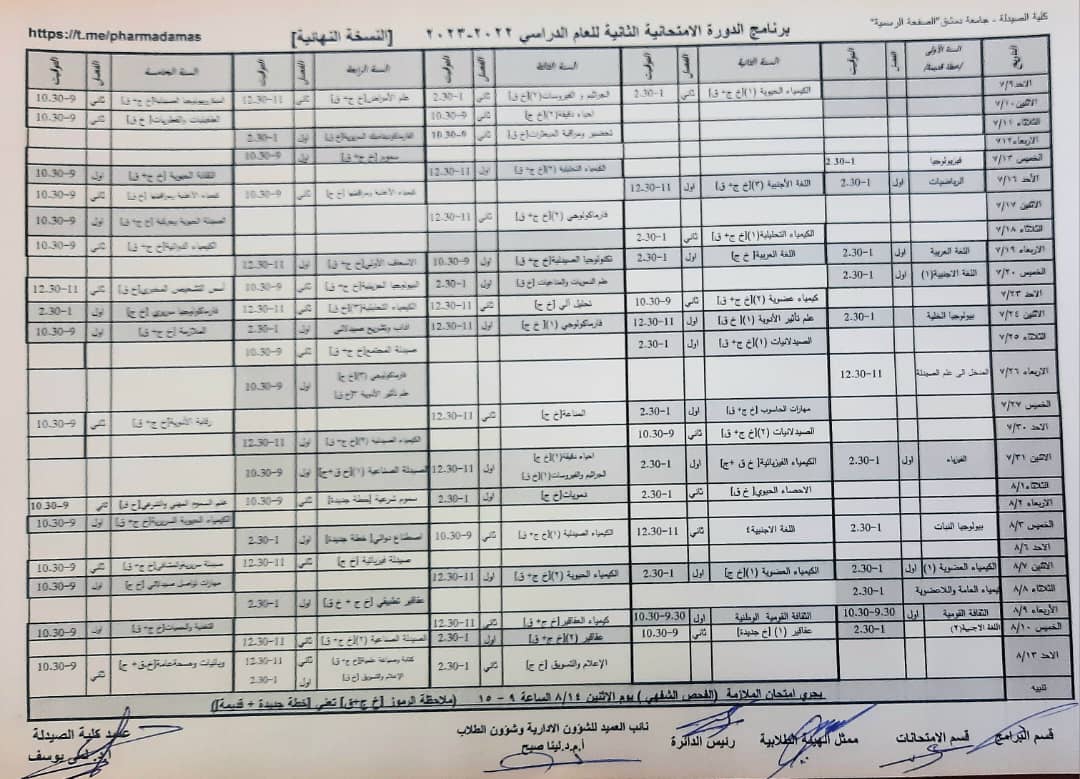 كلية الصيدلة - جامعة دمشق "الصفحة الرسمية"
برنامج الدورة الامتحانية الثانية للعام الدراسي ٢٠٢٢-٢٠٢٣ [النسخة النهائية]
https://t.me/pharmadamas
التاريخ السنة الأولى الفصل التوقيت السنة الثانية الفصل التوقيت السنة الثالثة الفصل التوقيت السنة الرابعة الفصل التوقيت السنة الخامسة الفصل التوقيت
الاحد ٧/٩ الكيمياء الحيوية (١)[خ ج+ ق] ثاني 2.30-1 الجراثيم و الفيروسات(٢)[خ ق] ثاني 2.30-1 علم الأمراض[خ ج+ ق] ثاني 12.30-11 ثاني 10.30-9
الاثنين ٧/١٠ احياء دقيقة(٢)[خ ج] ثاني 10.30-9 الطفيليات والفطريات[ خ ق] ثاني 10.30-9
الثلاثاء ٧/١١ تحضير ومراقبة المبعثرات[خ ق] ثاني 10.30-9 اول 2.30-1
الاربعاء ٧١٢ سموم [خ ج+ ق] اول 10.30-9
الخميس ٧/١٣ فيزيولوجيا 2.30-1 الكيمياء التحليلية (٢)[خ ج+ ق] اول 12.30-11 التقانة الحيوية [خ ج+ ق] اول 10.30-9
الأحد ٧/١٦ الرياضيات اول 2.30-1 اللغة الأجنبية (٣)[خ ج+ ق] اول 12.30-11 كيمياء الأغذية ومراقبتها[خ ج] ثاني 10.30-9 ثاني 10.30-9
الاثنين ٧/١٧ فارماكولوجي (٢)[خ ج+ ق] ثاني 12.30-11 اول 10.30-9
الثلاثاء ٧/١٨ الكيمياء التحليلية(١)[خ ج+ ق] ثاني 2.30-1 الكيمياء الدوائية[خ ج+ ق] ثاني 10.30-9
الاربعاء ٧/١٩ اللغة العربية اول 2.30-1 اللغة العربية[ خ ج] اول 2.30-1 تكنولوجيا الصيدلية[خ ج+ ق] اول 10.30-9 الاسعاف الأولي[خ ج+ ق] اول 12.30-11
الخميس ٧/٢٠ اللغة الاجنبية(١) اول 2.30-1 علم النحويات والمناعيات [خ ق] اول 2.30-1 ثاني 10.30-9 أسس التشخيص المخبري[خ ق] ثاني 12.30-11
الاحد ٧/٢٣ كيمياء عضوية (٢)[خ ج+ ق] ثاني 10.30-9 تحليل آلي [خ ج] ثاني 12.30-11 الكيمياء التحليلية(٣)[خ ق] ثاني 12.30-11 فارماكولوجيا سريري [خ ج] اول 2.30-1
الاثنين ٧/٢٤ بيولوجيا الخلية اول 2.30-1 علم تأثير الأدوية (١)[ خ ق] اول 12.30-11 فارماكولوجي (١)[ خ ج] اول 12.30-11 اداب وتشريع صيدلاني اول 2.30-1 الملازمة [خ ج+ ق] اول 10.30-9
الثلاثاء ٧/٢٥ الصيدلانيات (١)[خ ج+ ق] اول 2.30-1 صيدلة المجتمع[خ ج+ ق] ثاني 10.30-9
الاربعاء ٧/٢٦ المدخل الى علم الصيدلة 12.30-11 فارماكولوجي (٣)[خ ج] علم تأثير الأدوية ٣[خ ق] اول 10.30-9
الخميس ٧/٢٧ مهارات الحاسوب [خ ج+ ق] اول 2.30-1 المناعة[خ ج] ثاني 12.30-11 رقابة الأدوية[خ ج+ ق] ثاني 10.30-9
الاحد ٧/٣٠ الصيدلانيات (٢)[خ ج+ ق] ثاني 10.30-9 الكيمياء الصيدلية (٢)[خ ج+ ق] اول 12.30-11
الاثنين ٧/٣١ الفيزياء اول 2.30-1 الكيمياء الفيزيائية[ خ ق +ج] اول 2.30-1 احياء دقيقة(١)[خ ج] الجراثيم والفيروسات(١)[خ ق] اول 12.30-11 الصيدلة الصناعية (١)[خ ق+ج] اول 10.30-9
الثلاثاء٨/١ الاحصاء الحيوي[ خ ق] ثاني 2.30-1 نحويات[خ ج] اول 2.30-1 سموم شرعية [خطة جديدة] ثاني 10.30-9 علم السموم المهني والشرعي[خ ق] ثاني 10.30-9
الاربعاء ٨/٢ الكيمياء الحيوية السريرية[خ ج+ ق] اول 10.30-9
الخميس ٨/٣ بيولوجيا النبات 2.30-1 اللغة الاجنبية٤ ثاني 12.30-11 الكيمياء الصيدلية (١)[خ ج+ ق] ثاني 10.30-9 اصطناع دوائي[ خطة جديدة] اول 2.30-1
الاحد ٨/٦ صيدلة فيزيائية [خ ج] ثاني 12.30-11 ثاني 10.30-9
الاثنين ٨/٧ الكيمياء العضوية (١) اول 2.30-1 الكيمياء العضوية (١)[خ ج] اول 2.30-1 الكيمياء الحيوية (٢)[خ ج+ ق] اول 12.30-11 مهارات تواصل صيدلاني [خ ج] اول 10.30-9
الثلاثاء ٨/٨ كيمياء العامة واللاعضوية 2.30-1 عقاقير تطبيقي [خ ج + خ ق] اول 2.30-1
الأربعاء ٨/٩ الثقافة القومية اول 10.30-9.30 الثقافة القومية الوطنية اول 10.30-9.30 كيمياء العقاقير[خ ج+ ق] ثاني 12.30-11
الخميس ٨/١٠ اللغة الاجنبية(٢) 2.30-1 عقاقير (١) [خ جديدة] ثاني 10.30-9 عقاقير (٢)[خ ج+ ق] اول 2.30-1 الصيدلة الصناعية (٢)[خ ج+ ق] ثاني 12.30-11 التغذية والحميات[خ ج+ ق] اول 10.30-9
الاحد ٨/١٣ الإعلام والتسويق [خ ج] ثاني 2.30-1 كتابة وصياغة علمية[خ ج+ ق] ثاني 12.30-11 الإعلام والتسويق [خ ق] اول 2.30-1 وبائيات وصحةعامة[خ.ق+ ج] ثاني 10.30-9
تنبيه يجري امتحان الملازمة (الفحص الشفهي ) يوم الاثنين ٨/١٤ الساعة ٩ - ١٥ (ملاحظة الرموز [خ ج+ق] تعني [خطة جديدة + قديمة])
قسم البرامج قسم الامتحانات ممثل الهيئة الطلابية رئيس الدائرة نائب العميد للشؤون الادارية وشؤون الطلاب عميد كلية الصيدلة
أ.م.د.لينا صبح